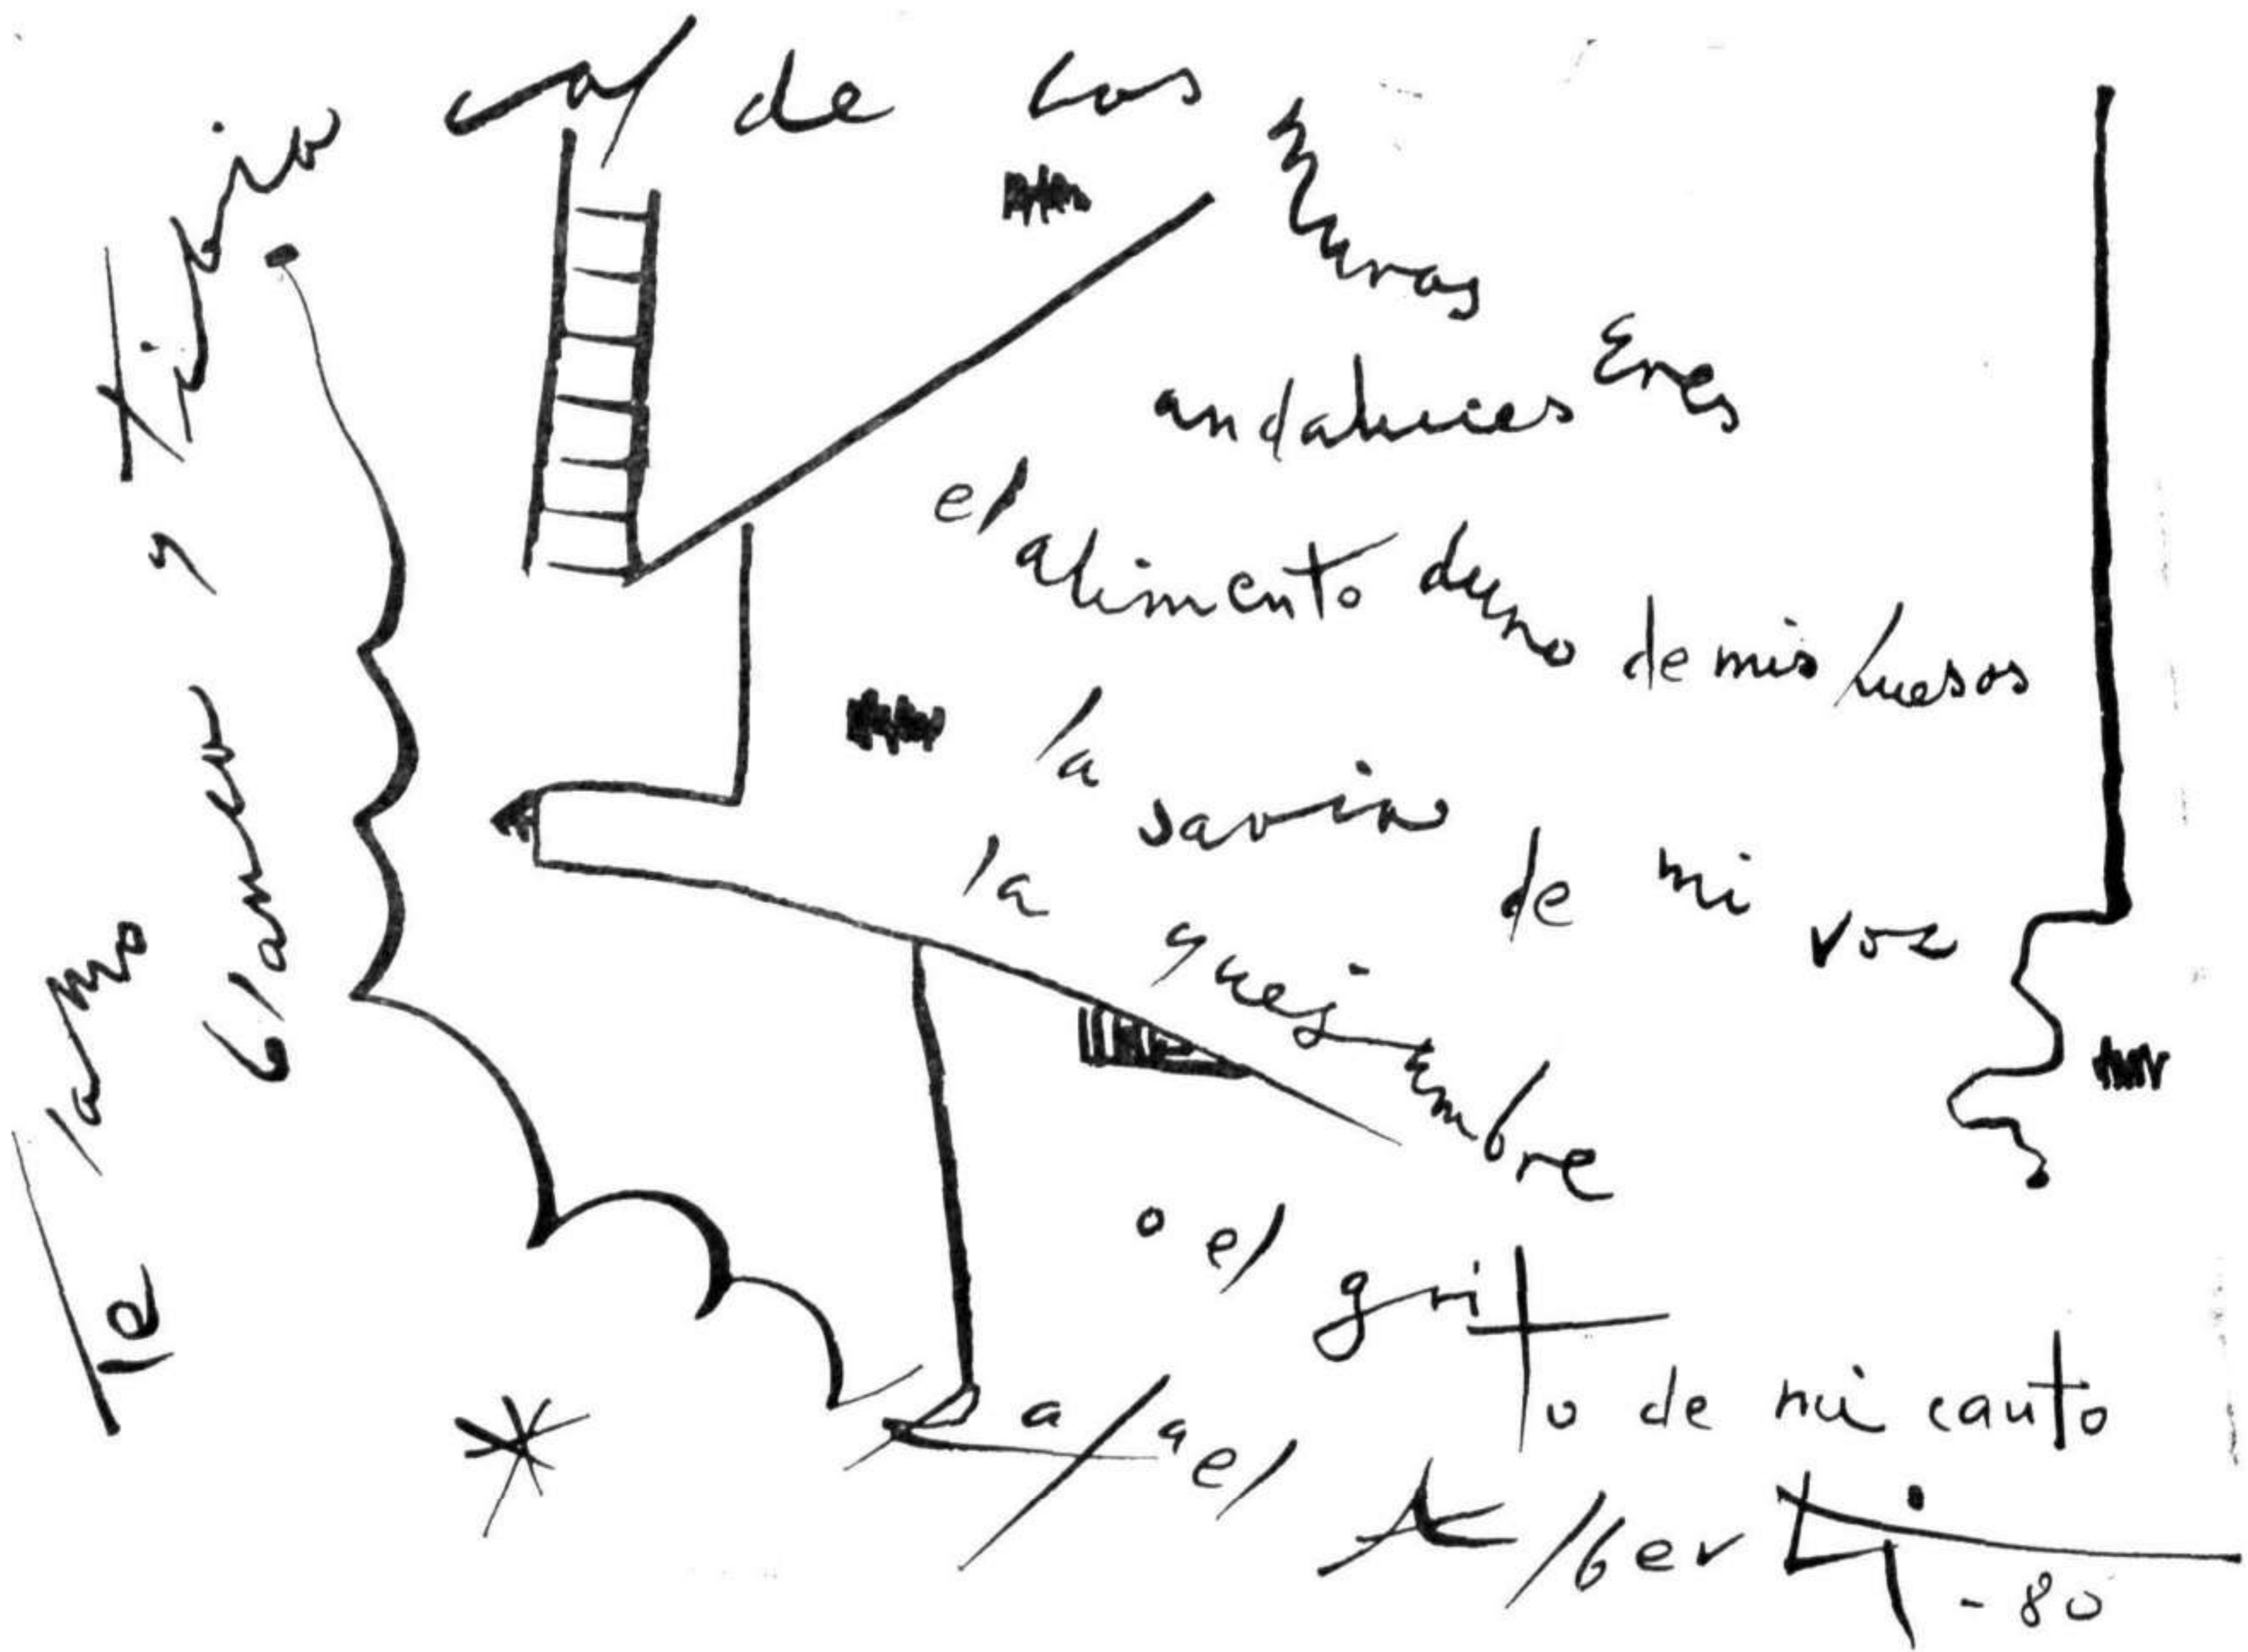 Te lamo
blanco y tibio
cal de los
muros
andaluces Eres
el
alimento duro de mis huesos
la
savia de mi voz
la
quejumbre
o el
grito de mi canto
Rafael
Alberti -80